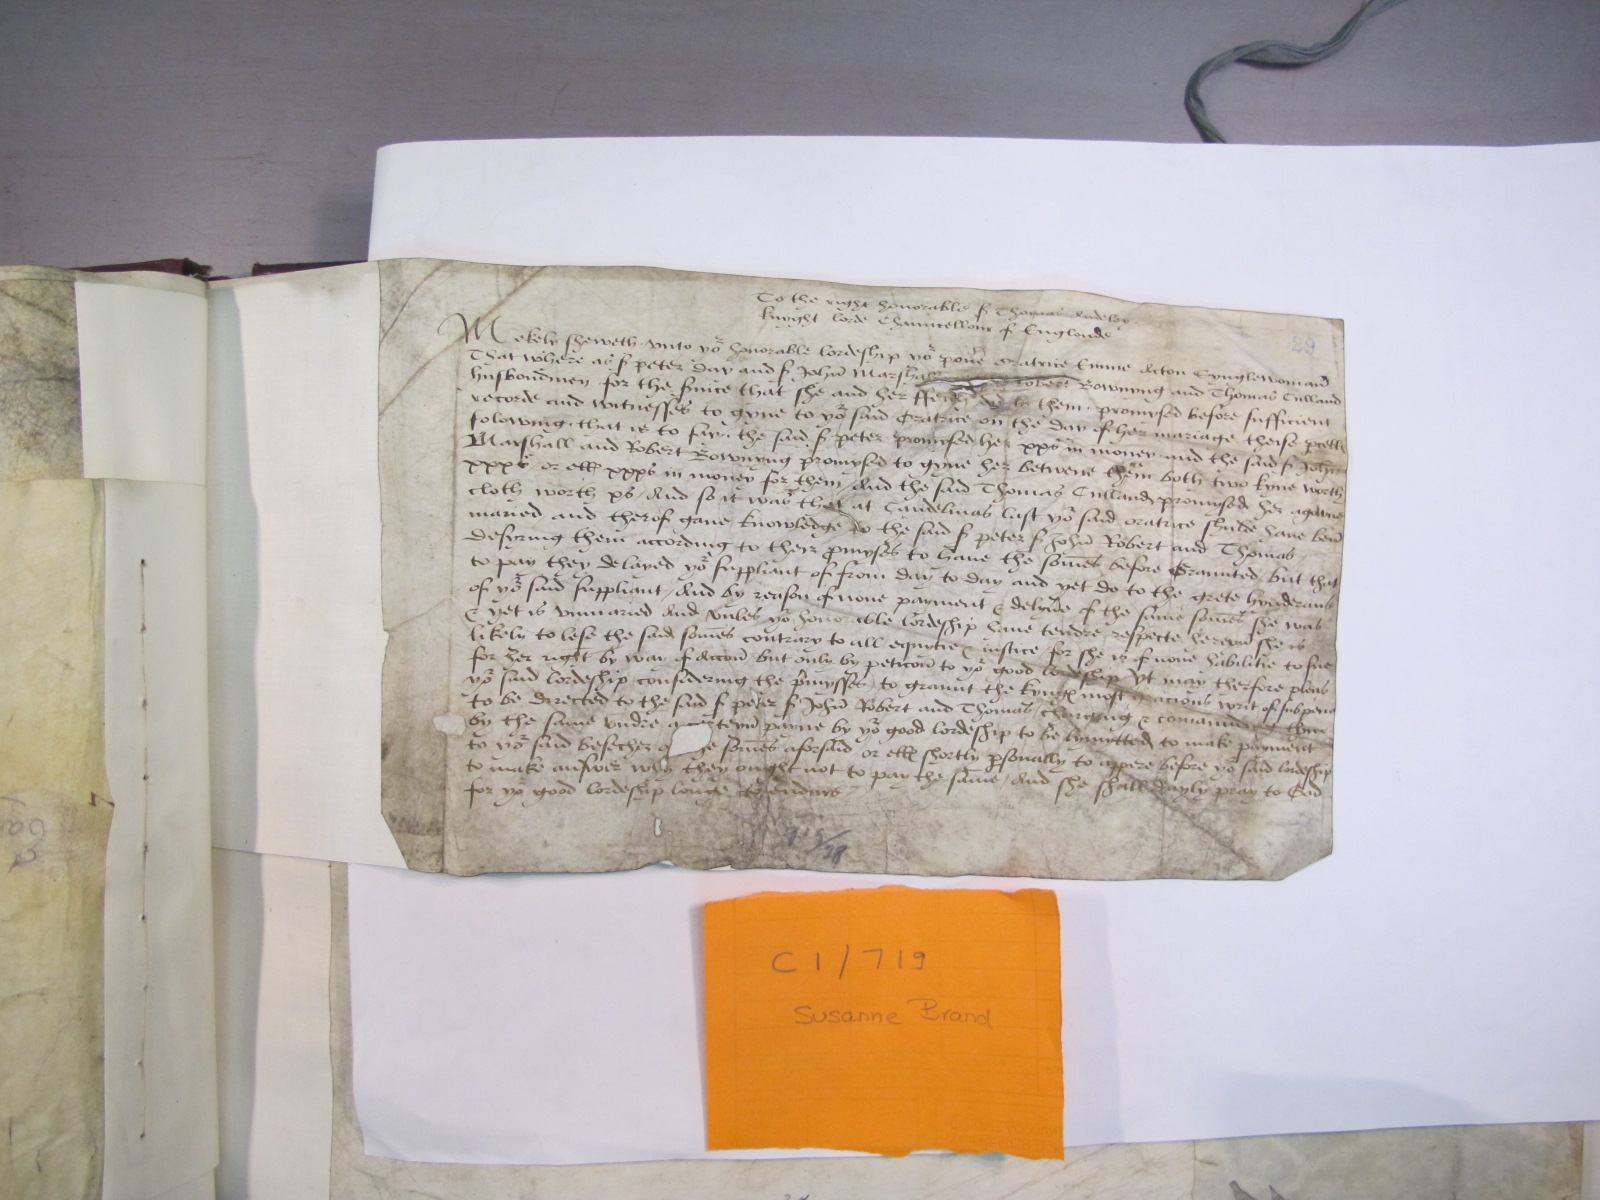 To the right honorable sr Thomas Audeley
knyght lorde Chauncellour of Englonde
29
Mekely sheweth vnto yor honorable lordeship yor pouer oratrice Emme Acton Synglewoman
That where as sr peter Day and sr John Marshall Robert Bownyng and Thomas Culland
husbondmen for the that she and her to them promysed before sufficient
recorde and witnesses to gyue to yor said Oratrice on the day of her mariage theise
folowing that is to say the said sr peter promysed her xxs in money and the said sr John
Marshall and Robert Bownyng promysed to gyue her betwene them both two kyne worth
xxxs or ell xxxs in money for them And the said Thomas Culland promysed her
cloth worth xs And so it was that at Candelmas last yor said oratrice shulde haue ben
maried and therof gaue knowledge to the said sr peter sr John Robert and Thomas
desyring them according to their pmyses to haue the somes before Graunted but that
to pay they delayed yor suppliant of from day to day and yet do to the grete hynderaunce
of yor said suppliant And by reason of none payment & delyue of the same somes she was
& yet is vnmaried And vnles yor honorable lordeship haue tendre respecte herevn she is
likely to lese the said somes contrary to all equytie & iustice for she is of none habilitie to sue
for her right by way of Accon but only by peticon to yor good lordeship Yt may therfore pleas
yor said lordeship considering the pmysses to graunt the kyngs most gracious writ of suspena
to be directed to the said sr peter sr John Robert and Thomas charging & comaunding them
by the same vndre a certeyn payne by yor good lordeship to be lymytted to make payment
to yor said besecher of somes aforsaid or ell shortly psonally to appere before yor said lordeship
to make answer why they ought not to pay the same And she shall dayly pray to God
for yor good lordeship longe to endure
C1/719
Susanne Brand